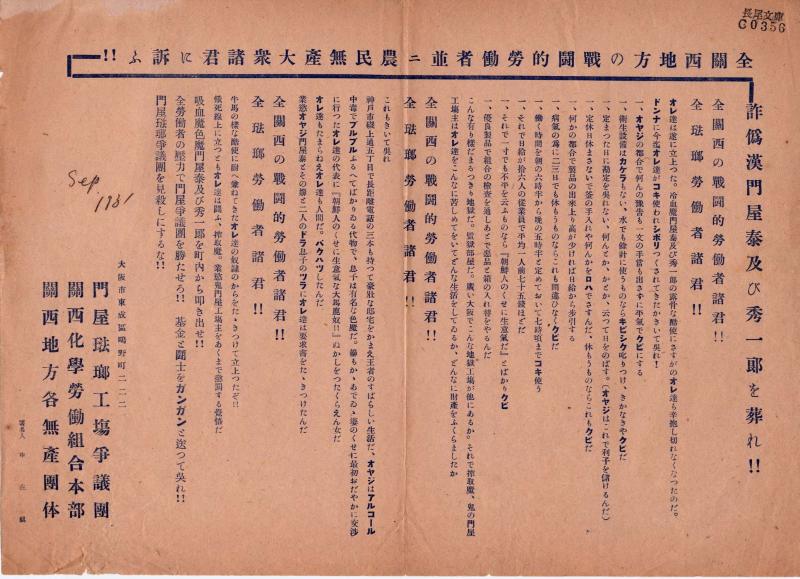 長尾文庫
C0356
全關西地方の戰鬪的勞働者並ニ農民無產大衆諸君に訴ふ!!
詐僞漢門屋泰及び秀一郞を葬れ!!
全關西の戰鬪的勞働者諸君!!
全琺瑯勞働者諸君!!
オレ達は遂に立上つた。冷血魔門屋泰及び秀一郞の露骨な酷使にさすがのオレ達も辛抱し切れなくなつたのだ。
ドンナに今迄オレ達がコキ使われシボリつくされてきたかきいて吳れ!
一、オヤジの都合で何んの豫告も一文の手當も出さずに平氣でクビにする
一、衛生設備はカケラもない、水でも餘計に使うものならキビシク叱りつけ、きかなきやクビだ
一、定まつた日に勘定を吳れない、何んとか、かとか、云つて日をのばす。(オヤジはこれで利子を儲けるんだ)
一、定休日休まさないで釜の手入れや何んかをロハでさすんだ、休もうものならこれもクビだ
一、何かの都合で製品の出來上り高が少ければ日給から步引する
一、病氣の爲に二三日でも休もうものならこれも間違ひなくクビだ
一、働く時間を朝の六時半から晚の五時半と定めておいて七時頃までコキ使う
一、それで日給が拾六人の從業員で平均一人前七十五錢ほどだ
一、それで一寸でも不平を云ふものなら『朝鮮人のくせに生意氣だ』とばかりクビ
一、優良製品で組合の檢査を通しあとで惡品と箱の入れ替をやるんだ
こんな有り樣だまるつきり地獄だ。監獄部屋だ。廣い大阪でこんな地獄工場が他にあるか。それで搾取魔、鬼の門屋
工場主はオレ達をこんなに苦しめてをいてどんな生活をしてゐるか、どんなに財產をふくらましたか
全關西の戰鬪的勞働者諸君!!
全琺瑯勞働者諸君!!
これもきいて吳れ
神戶市磯上通五丁目で長距離電話の三本も持つて豪壯な邸宅をかまえ王者のすばらしい生活だ、オヤジはアルコール
中毒でブルブルふるへてばかりゐる代物で、息子は有名な色魔だ。
に行つたオレ達の代表に『朝鮮人のくせに生意氣な大馬鹿奴!!』ぬかしをつたくらえん女だ
オレ達もたまらねえオレ達も人間だ。バクハツしたんだ
業慾オヤジ門屋泰とその嬶と二人のドラ息子のツラにオレ達は要求書をたゝきつけたんだ
全關西の戰鬪的勞働者諸君!!
全琺瑯勞働者諸君!!
牛馬の樣な酷使に耐へ兼ねてきたオレ達の奴隷のからをたゝきつけて立上つたぞ!!
餓死線上に立つともオレ達は鬪ふ、搾取魔。業慾鬼門屋工場主をあくまで懲罰する覺悟だ
吸血魔色魔門屋泰及び秀一郞を町內から叩き出せ!!
全勞働者の壓力で門屋爭議團を勝たせろ!! 基金と鬪士をガンガンと送つて吳れ!!
門屋琺瑯爭議團を見殺しにするな!!
Sep, 1931
大阪市東成區鴫野町二二二
門屋琺瑯工塲爭議團
關西化學勞働組合本部
關西地方各無產團体
署名人 申在